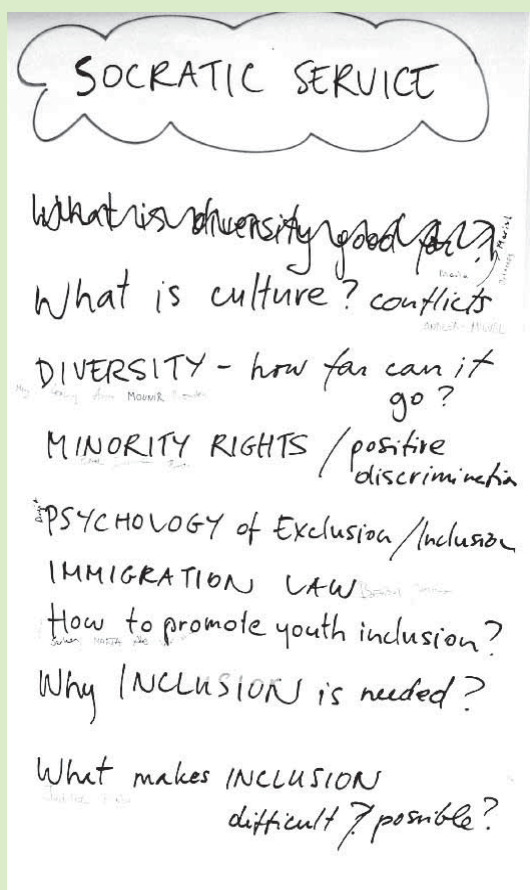 SOCRATIC SERVICE
What is diversity good for?
What is culture? conflicts
DIVERSITY - how far can it
go?
MOUNIR
MINORITY RIGHTS / positive
discrimination
PSYCHOLOGY of Exclusion / Inclusion
IMMIGRATION LAW
How to promote youth inclusion?
Why INCLUSION is needed?
What makes INCLUSION
difficult ? possible?